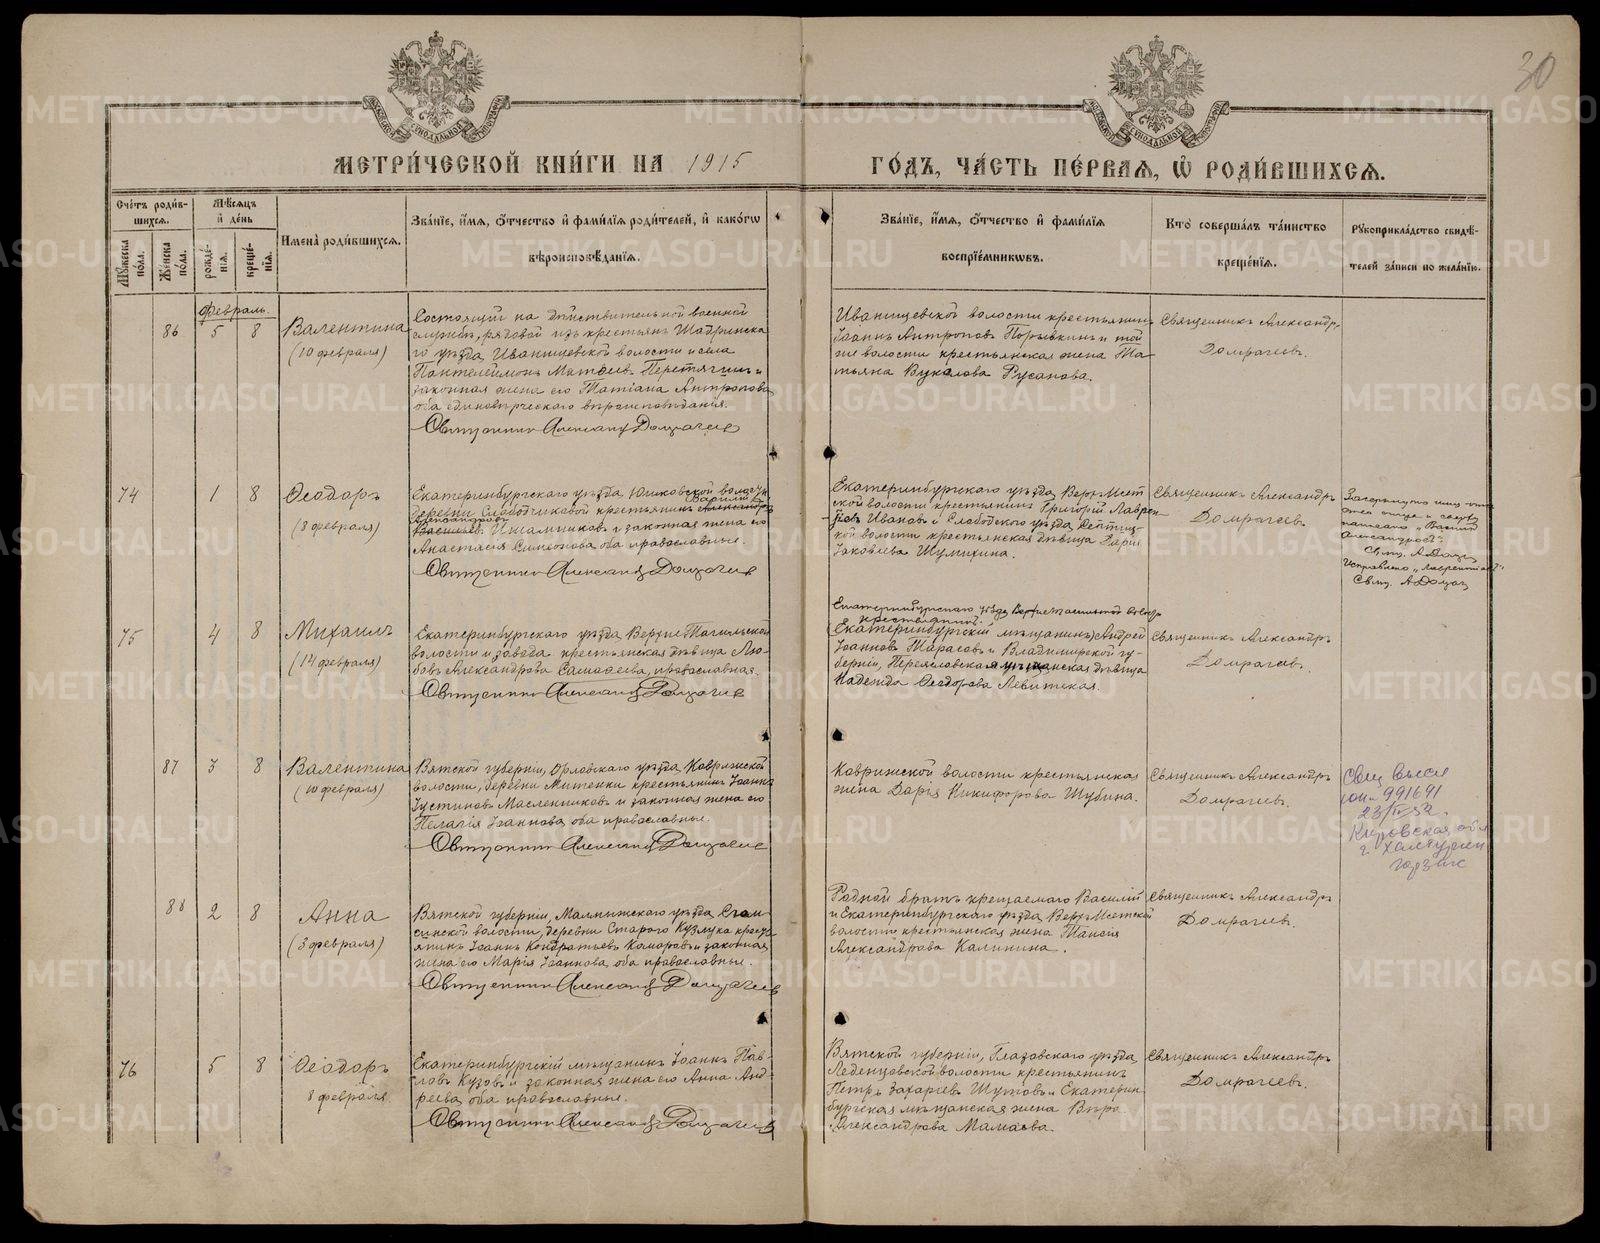 30
МЕТРИ́ЧЕСКОЙ КНИ́ГИ НА 1915 ГО́ДЪ, ЧА́СТЬ ПЕ́РВАЯ, Ѡ҆ РОДИ́ВШИХСЯ.
Сче́тъ роди́в-
шихся.
Мѣ́сяцъ
и де́нь
Му́жеска по́ла.
Же́нска по́ла.
рожде́-
нїя.
креще́-
нїя.
Имена̀ роди́вшихся.
Зва́нїе, и́мя, о́тчество и фами́лїя роди́телей, и како́гѡ
вѣроисповѣ́данїя.
Зва́нїе, и́мя, о́тчество и фами́лїя
воспрїе́мникѡвъ.
Кто̀ соверша́лъ та́инство
креще́нїя.
Рукоприкла́дство свидѣ́-
телей за́писи по жела́нїю.
Февраль.
86 5 8 Валентина
(10 февраля)
Состоящій на дѣйствительной военной
службѣ, рядовой изъ крестьянъ Шадринска
го уѣзда Иванищевской волости и села
Пантелеймонъ Матѳеевъ Перетягинъ и
законная жена его Татіана Антропова
оба единовѣрческаго вѣроисповѣданія.
Священникъ Александръ Домрачеев
Иванищевской волости крестьянинъ
Іоаннъ Антроповъ Порывкинъ и той
же волости крестьянская жена Та-
тьяна Вукалова Русанова.
Священникъ Александръ
Домрачеевъ.
74 1 8 Ѳеодоръ
(8 февраля)
Екатеринбургскаго уѣзда, Юшковской волости
деревни Слободчиковой крестьянинъ Александръ
Василій
Александровъ
Васильевъ и законная жена его
Анастасія Симеонова, оба православные.
Священникъ Александръ Домрачеев
Екатеринбургскаго уѣзда, Верх-Исет-
ской волости крестьянинъ Григорій Лаврен
тіевъ Ивановъ и Слободского уѣзда
кой волости крестьянская дѣвица Дарія
Іаковлева Шумихина.
Священникъ Александръ
Домрачеевъ.
Зачеркнуто имя и
написано „Василій
Александровъ“.
Свящ. А. Домр
Исправлено „Лаврентіевъ“
Свящ. А Домр
75 4 8 Михаилъ
(14 февраля)
Екатеринбургскаго уѣзда, Верхне-Тагильской
волости и завода крестьянская дѣвица Лю-
бовь Александрова, православная.
Священникъ Александръ Домрачеев
Екатеринбургскаго уѣзда Верхнетагильской волости
крестьянинъ
(Екатеринбургскій мѣщанинъ) Андрей
Іоанновъ Тарасовъ и Владимирской гу-
берніи, Переяславская мѣщанская дѣвица
Надежда Ѳеодорова Левитская.
Священникъ Александръ
Домрачеевъ.
87 3 8 Валентина
(10 февраля)
Вятской губерніи, Орловскаго уѣзда, Коврижской
волости, деревни Митенки крестьянинъ Іоаннъ
Іустиновъ Масленниковъ и законная жена его
Пелагія Іоаннова, оба православные.
Священникъ Александръ Домрачеев
Коврижской волости крестьянская
жена Дарія Никифорова Шубина.
Священникъ Александръ
Домрачеевъ.
991641
23/IV 52
Кировская обл
г. Халтурин
88 2 8 Анна
(3 февраля)
Вятской губерніи, Малмыжскаго уѣзда,
волости, деревни Старого Кузлука кресть
янинъ Іоаннъ Кондратьевъ Комаровъ и законная
жена его Марія Іоаннова, оба православные.
Священникъ Александръ Домрачеев
Родной братъ крещаемаго Василій
и Екатеринбургскаго уѣзда, Верх-Исетской
волости крестьянская жена Таисія
Александрова Калинина.
Священникъ Александръ
Домрачеевъ.
76 5 8 Ѳеодоръ
8 февраля.
Екатеринбургскій мѣщанинъ Іоаннъ Пав-
ловъ Кузовъ и законная жена его Анна Анд-
реева, оба православные.
Священникъ Александръ Домрачеев
Вятской губерніи, Глазовскаго уѣзда
Леденцовской волости крестьянинъ
Петръ Захаріевъ Шутовъ и Екатерин-
бургская мѣщанская жена Вѣра
Александрова Мамаева.
Священникъ Александръ
Домрачеевъ.
METRIKI.GASO-URAL.RU